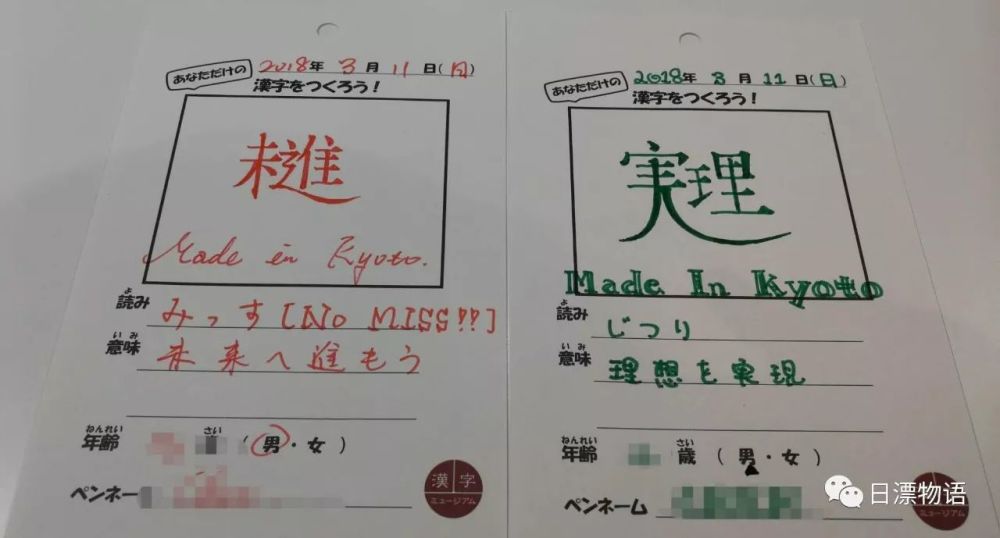 2018年 3月 11日(日)
あなただけの
漢字をつくろう!
Made in Kyoto.
よ
読み みっす [No MISS!!]
いみ
意味 未来へ進もう
ねんれい さい
年齢 (男・女)
ペンネー
漢字
ミュージアム
2018年 3月 11日(日)
あなただけの
漢字をつくろう!
実理
Made In Kyoto
よ
読み じつり
いみ
意味 理想を実現
ねんれい さい
年齢 歳 (男・女)
ペンネーム
日漂物语